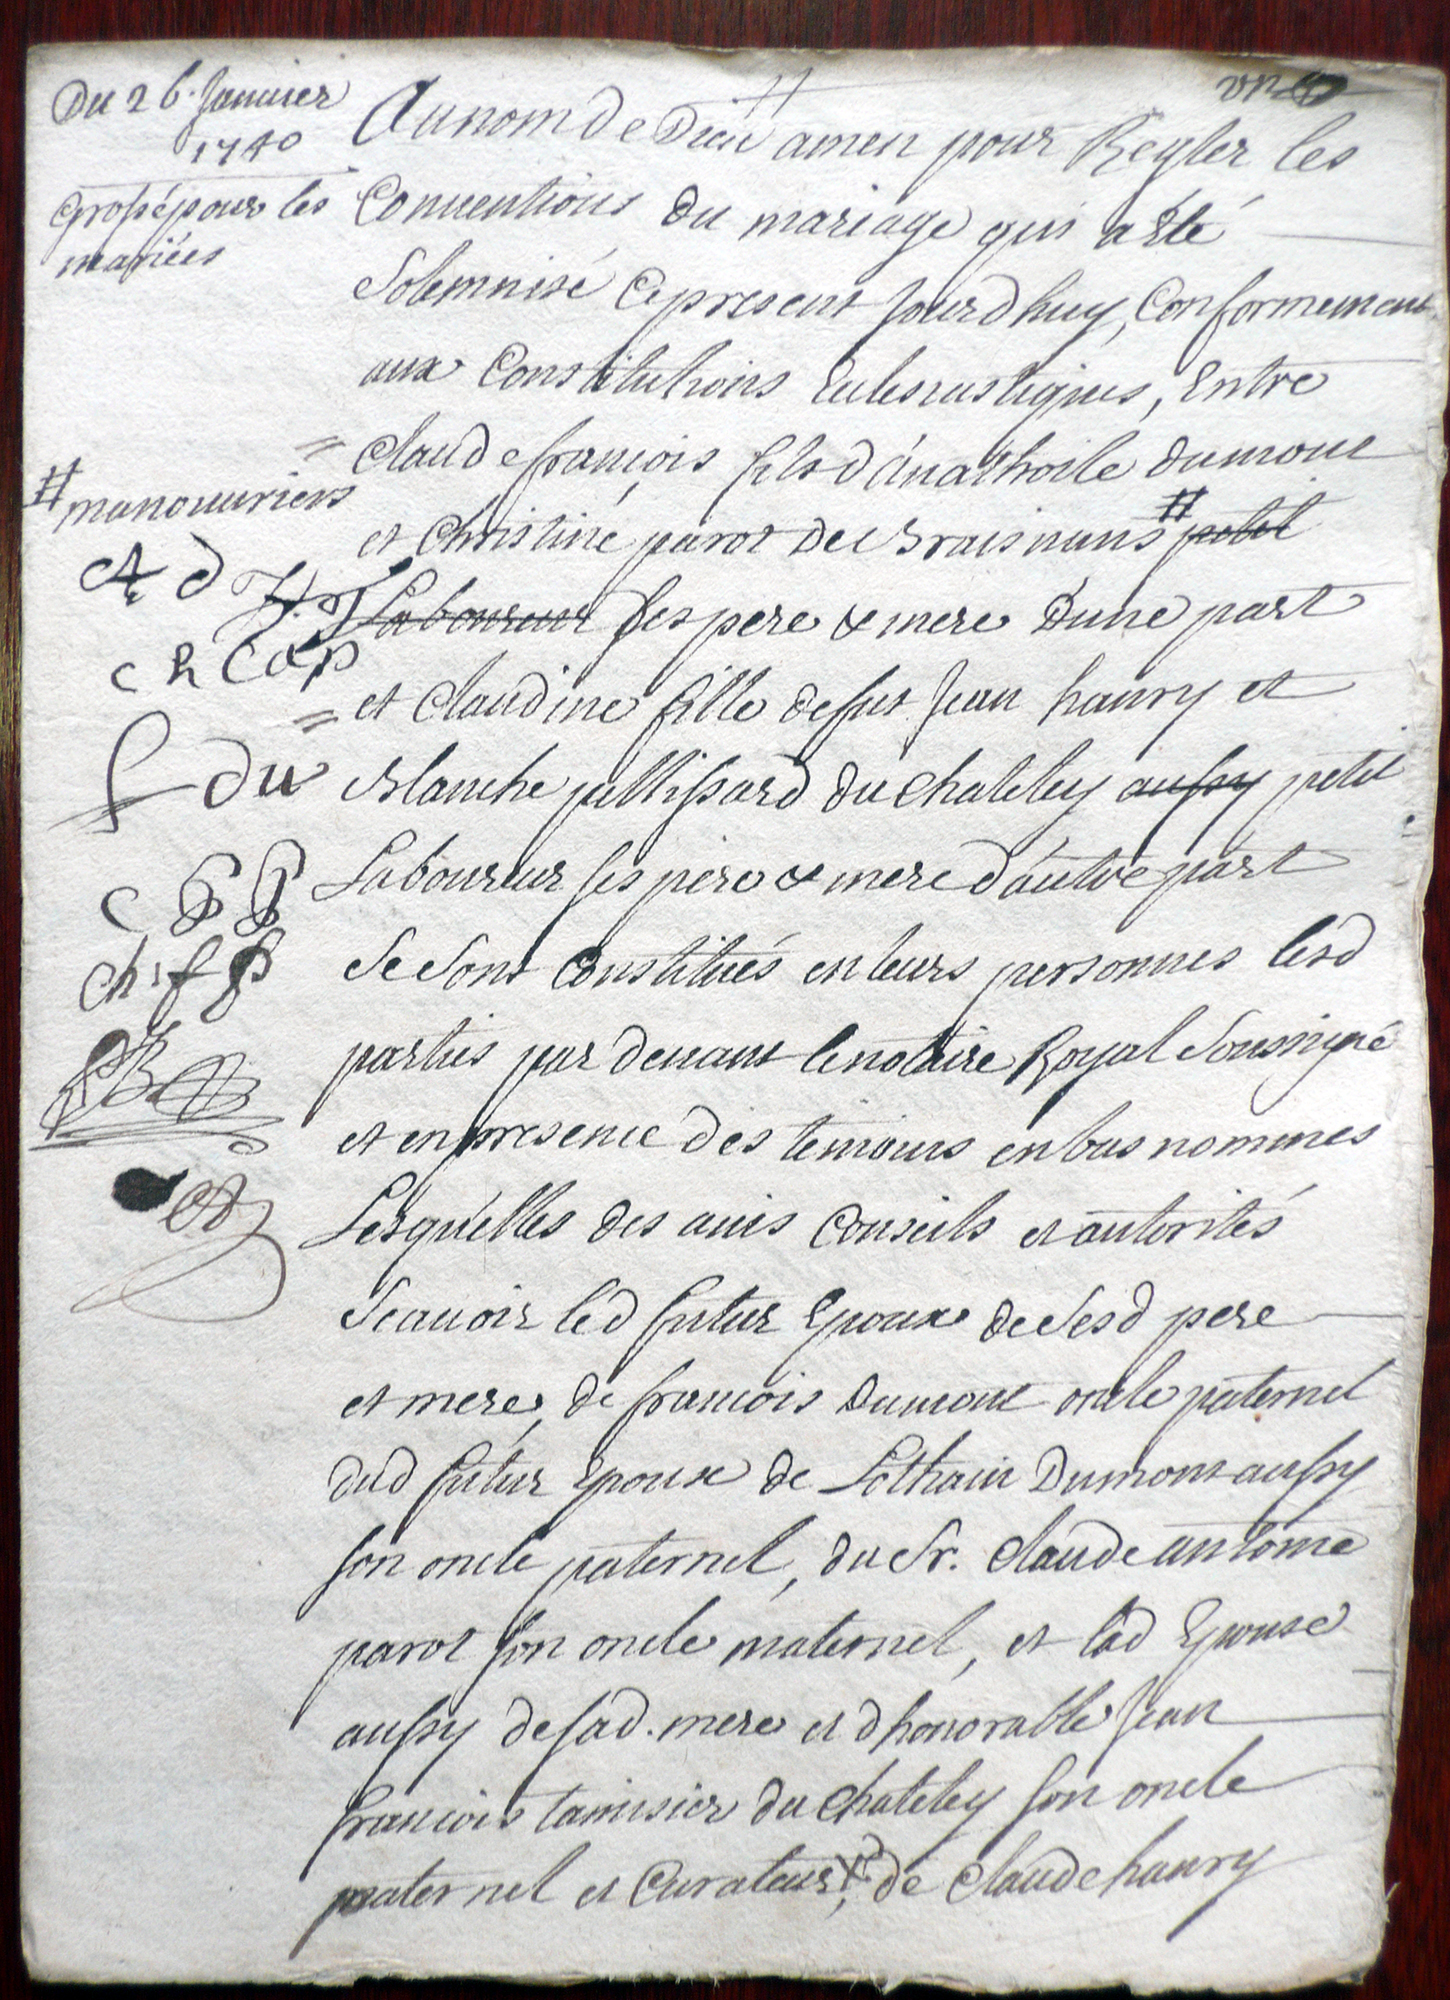 Du 26. Janvier
1740
Grossé pour les
mariées
Au nom de Dieu amen pour Regler les
Conventions du mariage qui a êté
Solemnisé Ce present Jourdhuy, Conformement
aux Constitutions Eclesiastiques, Entre
Claude françois fils d'Anathoile Dumont
# manouvriers
et Christine parot des Braisnans # petit
Laboureur ses pere & mere Dune part
et Claudine fille de fut Jean haury et
Blanche pillissard du Chateley aussy petit
Laboureur ses pere & mere d'autre part
Se Sont Constitués en leurs personnes lesd
parties par devant le notaire Royal Soussigné
et en presence des temoins en bas nommes
Lesquelles des avis Conseils et autorités
Scavoir led futur Epoux de Sesd pere
et mere, de francois Dumont oncle paternel
dud futur Epoux de Lothain Dumont aussy
son oncle paternel, du Sr. Claude antoine
parot son oncle maternel, et lad Epouse
aussy de sad. mere et dhonorable Jean
francois tamisier du Chateley son oncle
maternel et Curateur, de Claude haury